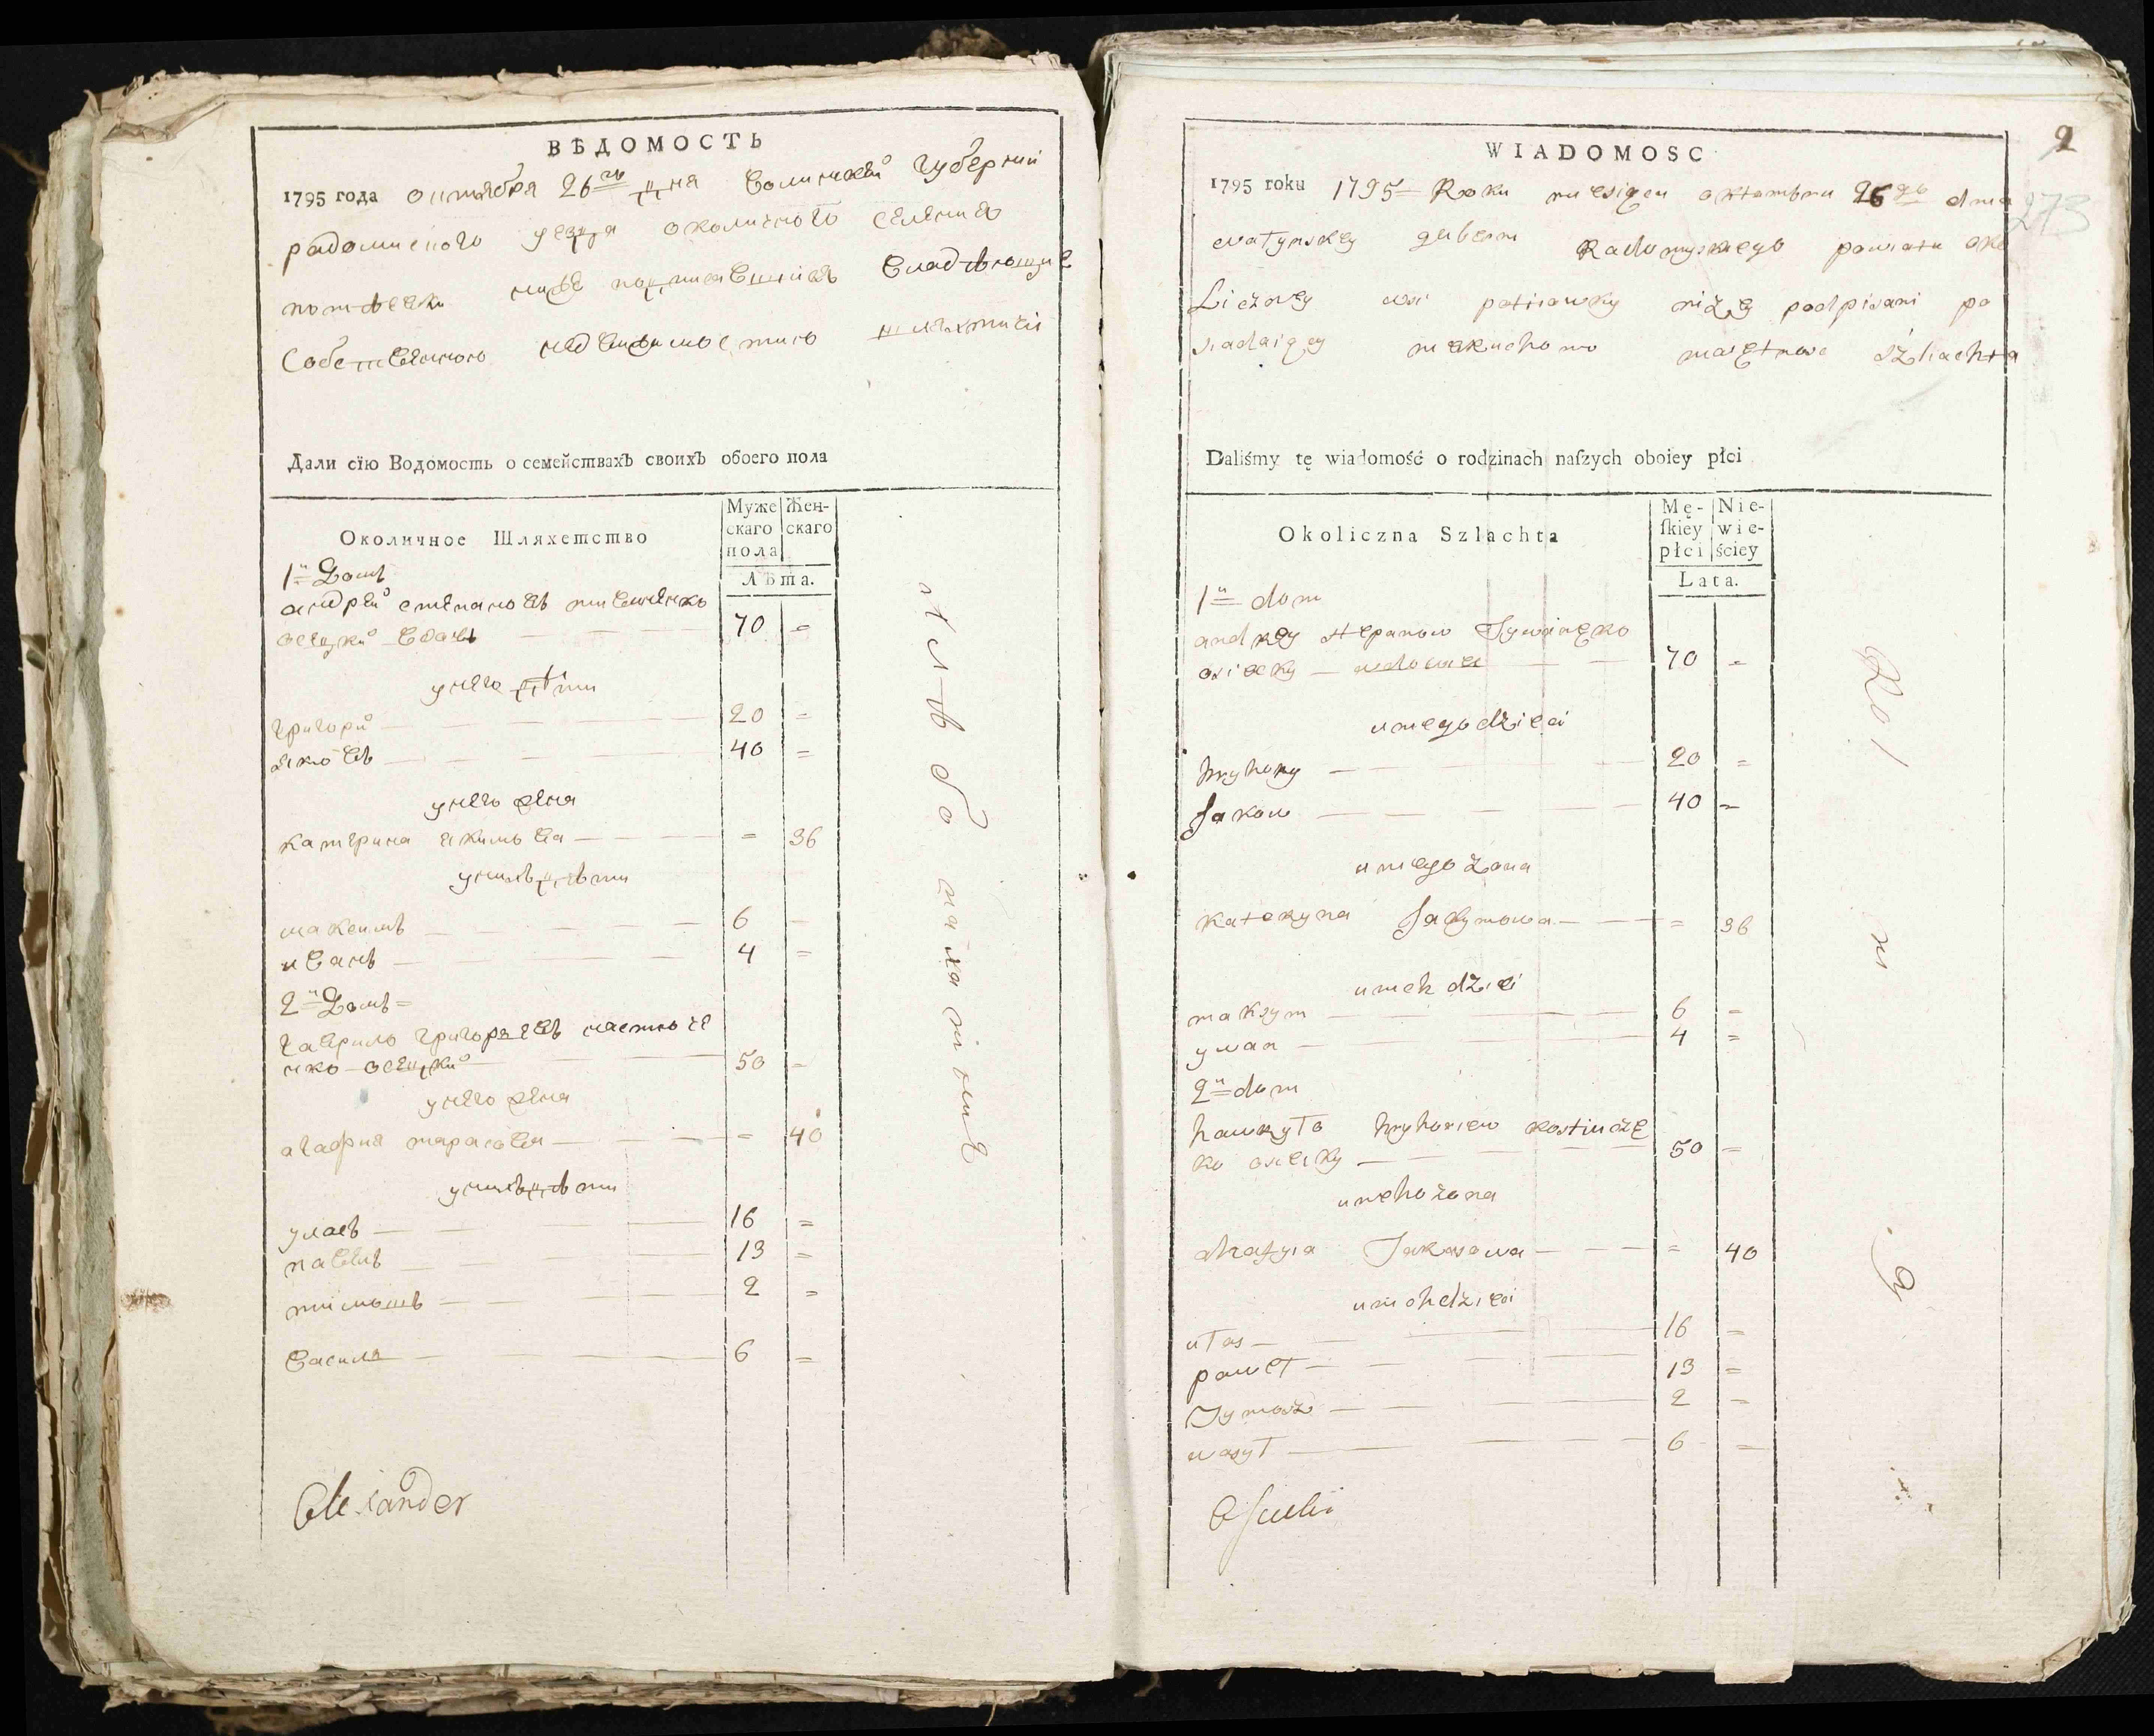 ВѢДОМОСТЬ
1795 года октября 26го дня Волинской губернии
радомиского уезда околичного селения
потиевки ниже подписавшиися владѣющие
собственною недвижимостию шляхтичи
Дали сїю Водомость о семействахъ своихъ обоего пола
Околичное Шляхетство
Муже скаго пола
Жен- скаго
Лѣта.
1й Домъ
андрей степановъ тивоненко
осецкий вдовъ 70 =
у него дѣти
григорий 20 =
яковъ 40 =
у него жена
катерина якимова = 36
у нихъ дѣти
максимъ 6
иванъ 4 =
2й Домъ =
гаврило григориевъ костюче
нко осецкий 50 =
у него жена
агафия тарасова = 40
у нихъ дѣти
уласъ 16 =
павелъ 13 =
тимошъ 2 =
василь 6 =
Alexander
2
273
WIADOMOSC
1795 roku 1795 Roku miesigcu oktombru 26go dnia
watynskey gubern Radomyskiego powiatu oko
Liczney wsi potiiowky nizey podpisani po
siadaigcy niekuchomo maiętnosc szliachta
Daliśmy tę wiadomość o rodzinach naſzych oboiey płci
Okoliczna Szlachta
Mę- ſkiey płci
Nie- wie- ściey
Lata.
1n dom
andrzey stepanow Tywonęko
osiecky wdowiec 70 =
u niego dzieci
hryhory 20 =
Jakow 40 =
u niego żona
kateryna Jakymowa = 36
u nich dzieci
maksym 6 =
ywan 4 =
2n dom
hawryło hryhoriew kostiuczę
ko osiecky 50 =
u nieho żona
ahafyia Tarasowa = 40
u nich dzieci
ułas 16 =
paweł 13 =
Tymosz 2 =
wasył 6 =
Osiecki